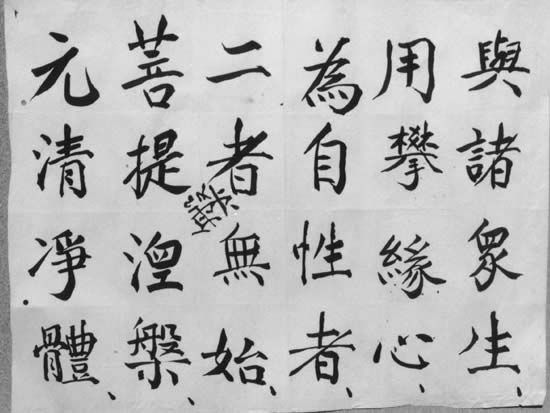 與諸眾生、
用攀緣心、
為自性者、
二者無始、
菩提涅槃、
元清凈體、